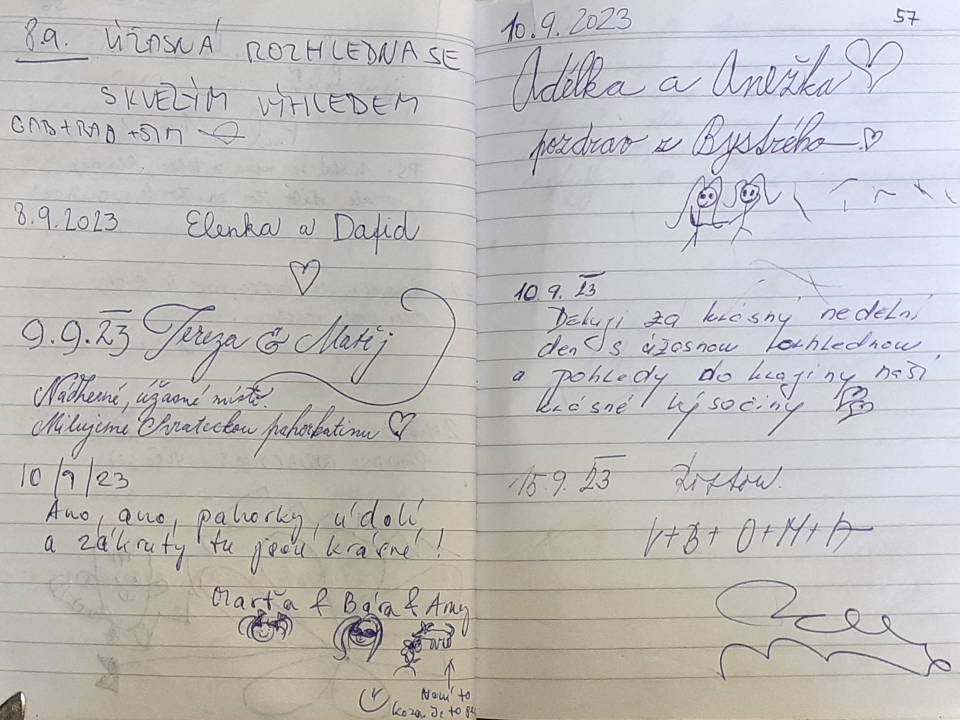 8.9. ÚŽASNÁ ROZHLEDNA SE
SKVELÝM VÝHLEDEM
8.9.2023 Elenka a David
9.9.23 Tereza & Matěj
Nádherné, úžasné místo.
Milujeme Chrateckou pahorkatinu
10/9/23
Ano, ano, pahorky, údolí
a zákruty tu jsou krásné!
Marťa & Bára & Amy
Není to
koza. Je to
57
10.9.2023
Adélka a Anežka
pozdrav z Bystrého
10.9.23
Děkuji za krásný nedělní
den s úžasnou rozhlednou
a pohledy do krajiny naší
krásné Vysočiny
15.9.23
V+B+O+M+A